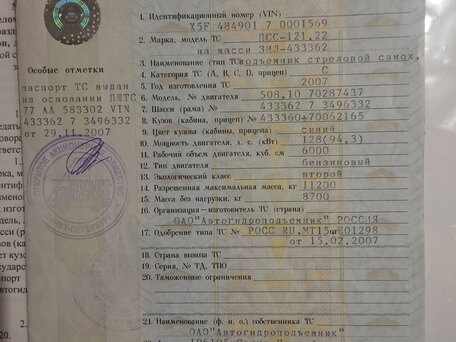 Особые отметки
паспорт ТС выдан
на основании ПШТС
77 АА 583302 VIN
433362 7 3496332
от 29.11.2007
1. Идентификационный номер (VIN)
X5F 484901 7 0001569
2. Марка, модель ТС ПСС-121.22
на шасси ЗИЛ-433362
3. Наименование (тип ТС) подъемник стреловой самох.
4. Категория ТС (А, В, С, D, прицеп) С
5. Год изготовления ТС 2007
6. Модель, № двигателя 508.10 70287437
7. Шасси (рама) № 433362 7 3496332
8. Кузов (кабина, прицеп) № 433360*70062165
9. Цвет кузова (кабины, прицепа) синий
10. Мощность двигателя, л. с. (кВт) 128(94,3)
11. Рабочий объем двигателя, куб. см 6000
12. Тип двигателя бензиновый
13. Экологический класс второй
14. Разрешенная максимальная масса, кг 11200
15. Масса без нагрузки, кг 8700
16. Организация—изготовитель ТС (страна)
ОАО"Автогидроподъемник" РОССИЯ
17. Одобрение типа ТС № РОСС RU.МТ15
от 15.02.2007
18. Страна вывоза ТС
19. Серия, № ТД, ТПО
20. Таможенные ограничения
21. Наименование (ф. и. о.) собственника ТС
ОАО"Автогидроподъемник"